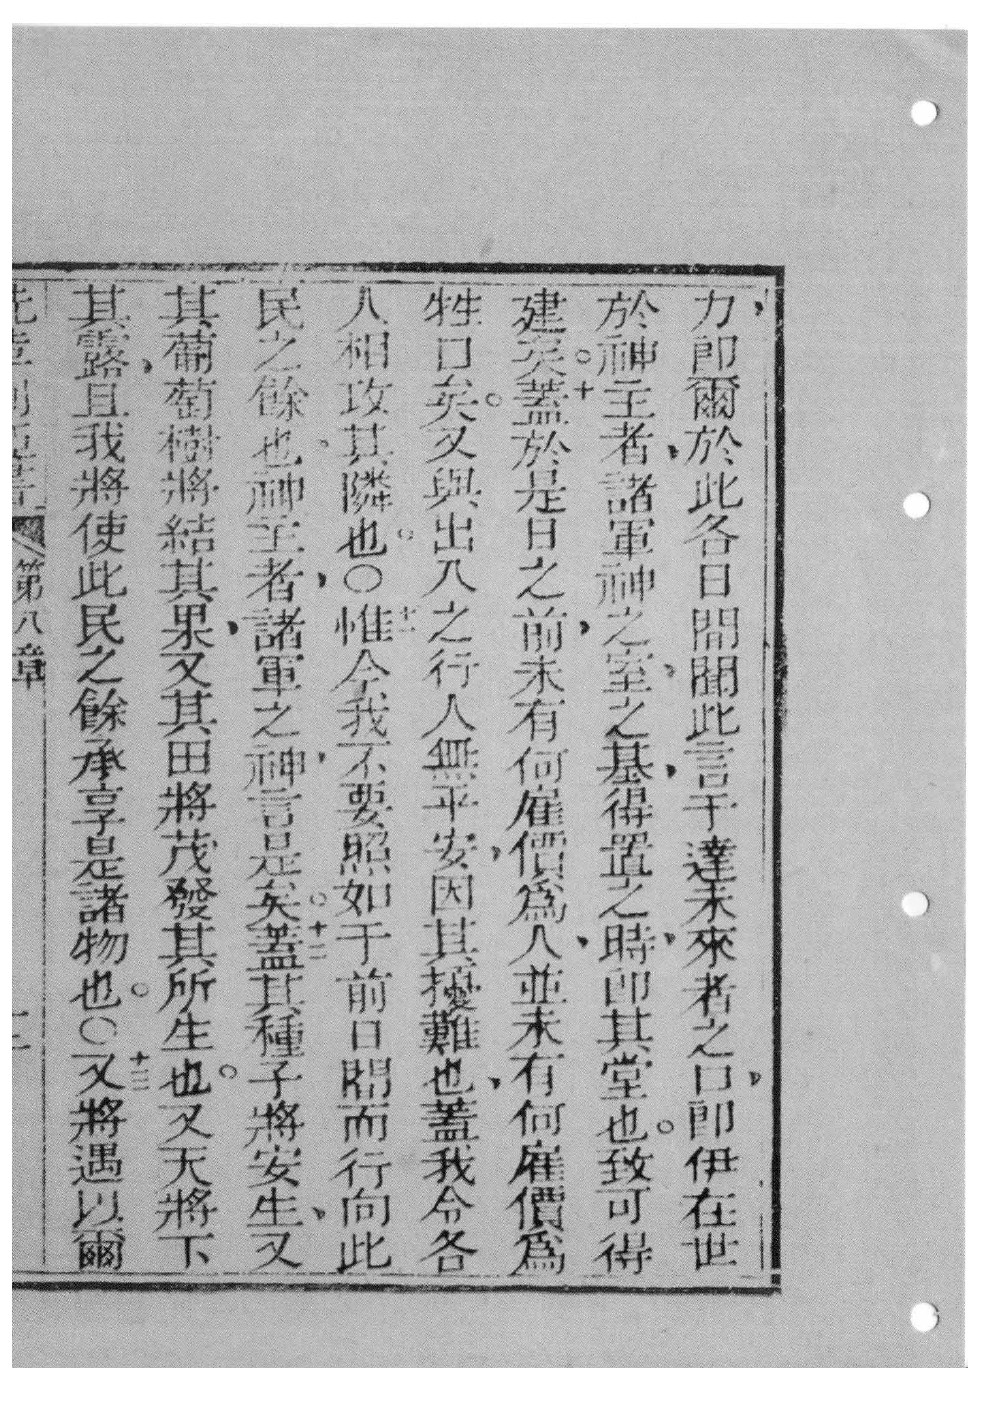 力即爾於此各日間聞此言于達未來者之口即伊在世
於神主者諸軍神之室之基得置之時即其堂也。致可得
建矣。十蓋於是日之前未有何雇價爲人並未有何雇價爲
牲口矣。又與出入之行人無平安因其擾難也蓋我令各
人相攻其隣也。○十一惟今我不要照如于前日間而行向此
民之餘也。神主者諸軍之神言是矣。十二蓋其種子將安生又
其葡萄樹將結其果又其田將茂發其所生也。又天將下
其露且我將使此民之餘承享是諸物也。○十三又將遇以爾
第八章